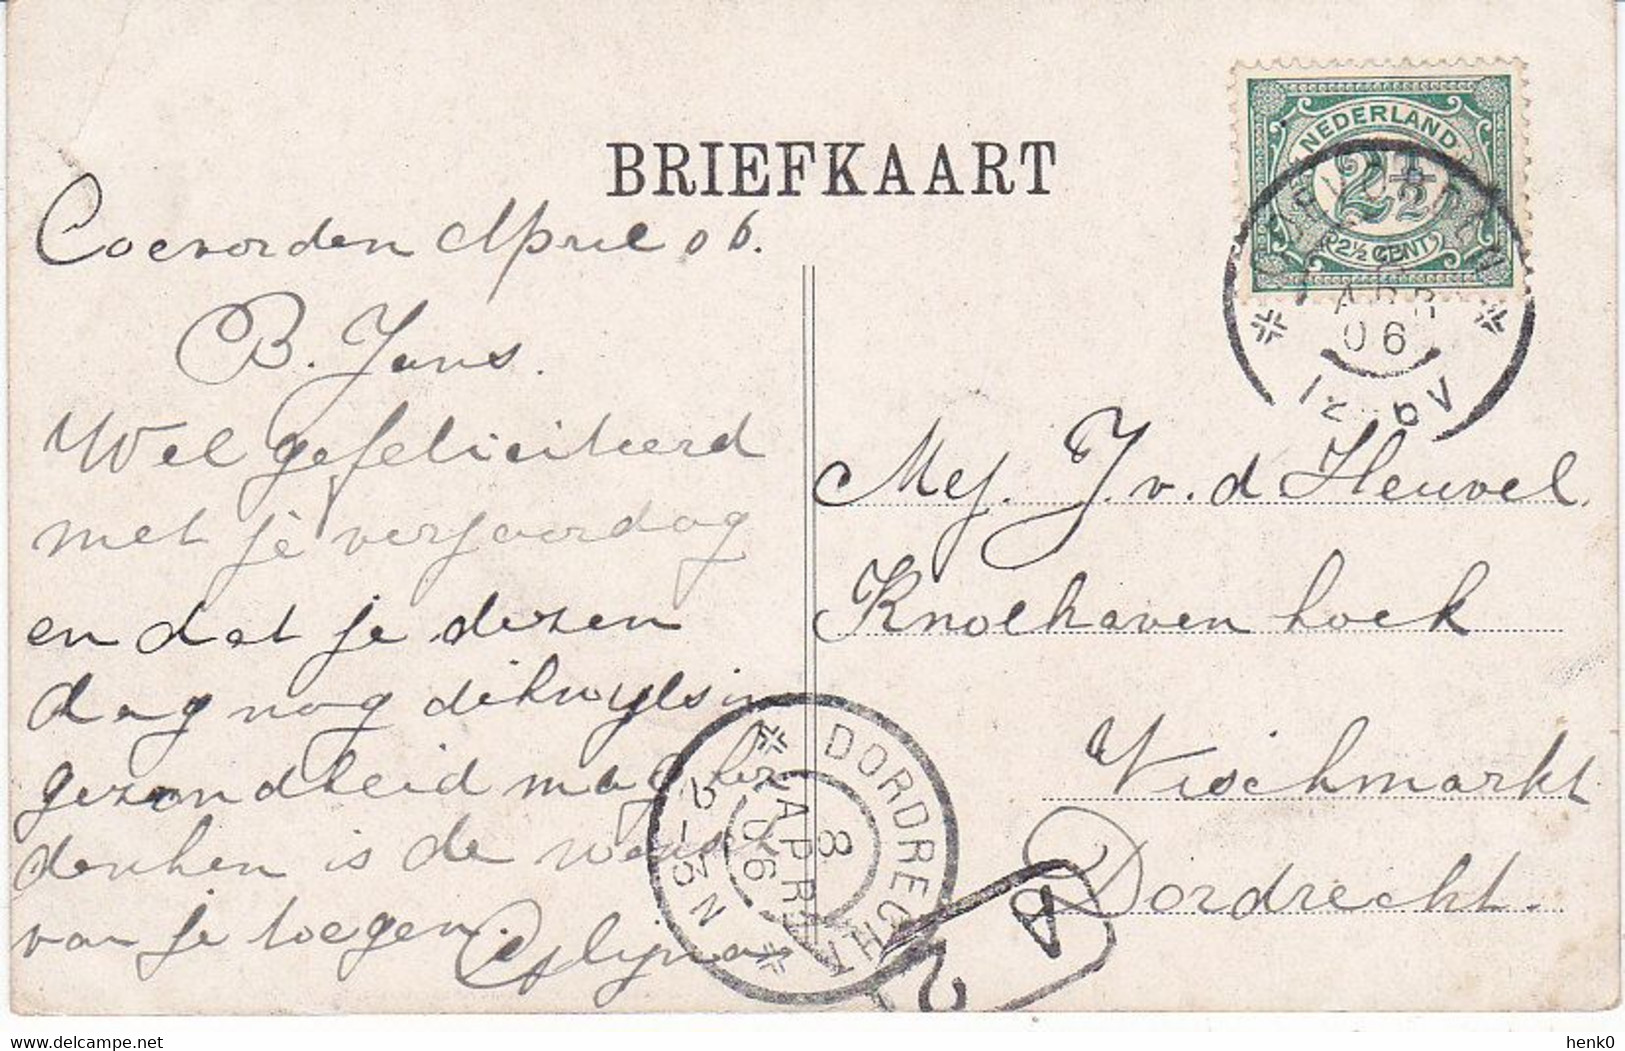 BRIEFKAART
NEDERLAND
2½
2½ CENT
APR
06
12-6V
Coevorden April 06.
B. Jans.
Wel gefeliciteerd
met je verjaardag
en dat je dezen
dag nog dikwyls in
gezondheid mag her
denken is de wensch
van je toegen.
Mej. J. v. d Heuvel.
Knolhaven hoek
Vischmarkt
Dordrecht.
DORDRECHT
8
APR
06
2-3N
A
2
henk0